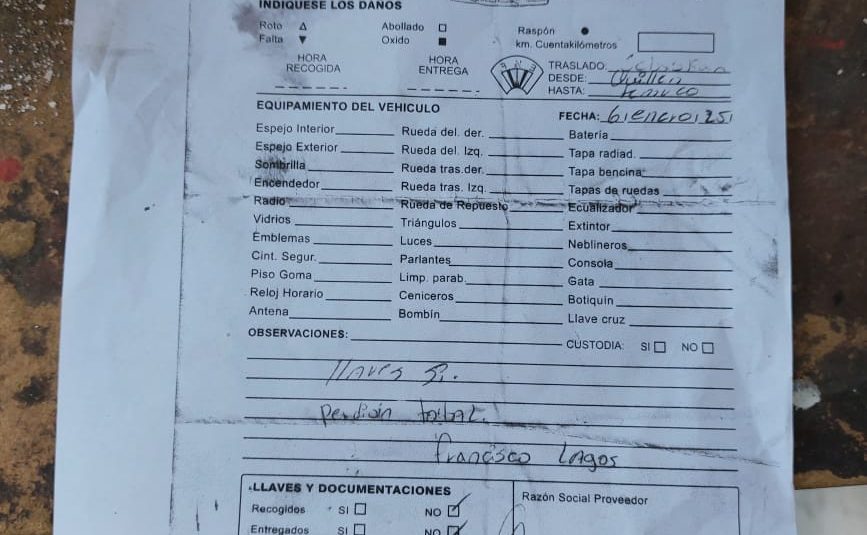 INDIQUESE LOS DAÑOS
Roto △ Abollado □ Raspón ●
Falta ▼ Oxido ■ km. Cuentakilómetros
HORA RECOGIDA HORA ENTREGA
TRASLADO:
DESDE:
HASTA: temuco
EQUIPAMIENTO DEL VEHICULO FECHA: 6, enero, 25,
Espejo Interior Rueda del. der. Batería
Espejo Exterior Rueda del. Izq. Tapa radiad.
Sombrilla Rueda tras.der. Tapa bencina
Encendedor Rueda tras. Izq. Tapas de ruedas
Radio Rueda de Repuesto Ecualizador
Vidrios Triángulos Extintor
Emblemas Luces Neblineros
Cint. Segur. Parlantes Consola
Piso Goma Limp. parab. Gata
Reloj Horario Ceniceros Botiquín
Antena Bombín Llave cruz
OBSERVACIONES: CUSTODIA: SI □ NO □
llaves si.
total.
Francisco Lagos
LLAVES Y DOCUMENTACIONES Razón Social Proveedor
Recogidos SI □ NO ☑
Entregados SI □ NO ☑